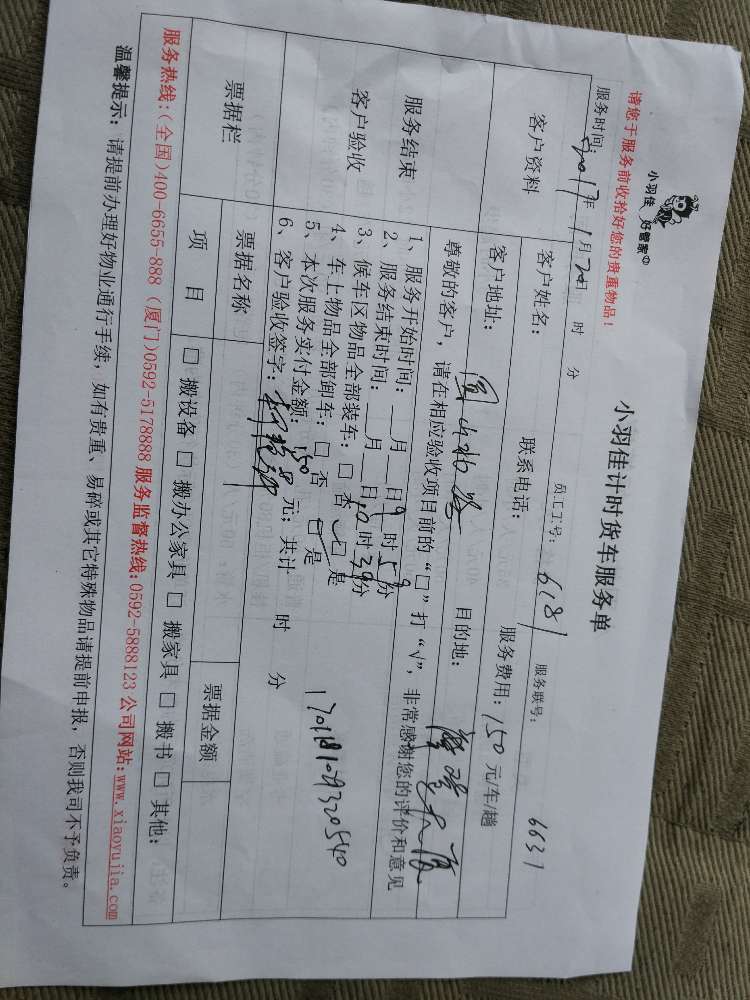 小羽佳 好管家
小羽佳计时货车服务单
请您于服务前收拾好您的贵重物品！
员工工号：6181 服务联号：6637
服务时间：2017年1月20日 时 分
客户资料
客户姓名： 联系电话： 服务费用：150元/车/趟
客户地址： 目的地：
服务结束
客户验收
尊敬的客户，请在相应验收项目前的“□”打“√”，非常感谢您的评价和意见
1、服务开始时间： 月 日9时59分
2、服务结束时间： 月 日10时39分
3、候车区物品全部装车：□否 □是
4、车上物品全部卸车：□否 □是
5、本次服务实付金额：150元；共计 时 分
6、客户验收签字：
票据栏
票据名称
票据金额
项目
□搬设备 □搬办公家具 □搬家具 □搬书 □其他：
服务热线：(全国)400-6655-888（厦门)0592-5178888 服务监督热线：0592-5888123 公司网站：www.xiaoyujia.com
温馨提示：请提前办理好物业通行手续，如有贵重、易碎或其它特殊物品请提前申报，否则我司不予负责。